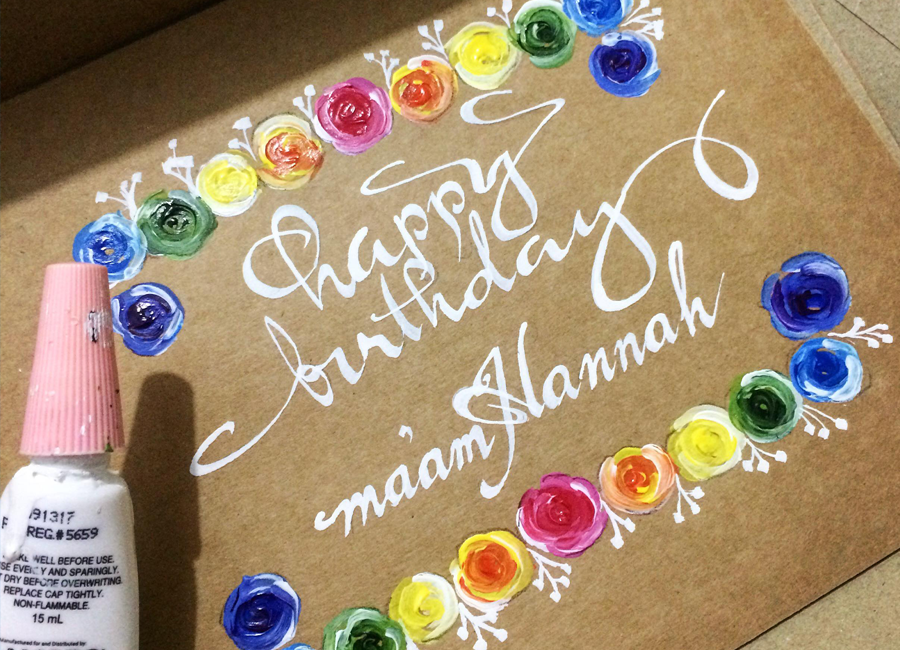 happy
birthday
ma'am Hannah
091317
REG.# 5659
WELL BEFORE USE.
USE EVENLY AND SPARINGLY.
DRY BEFORE OVERWRITING.
REPLACE CAP TIGHTLY.
NON-FLAMMABLE.
15 mL
Manufactured for and Distributed by: